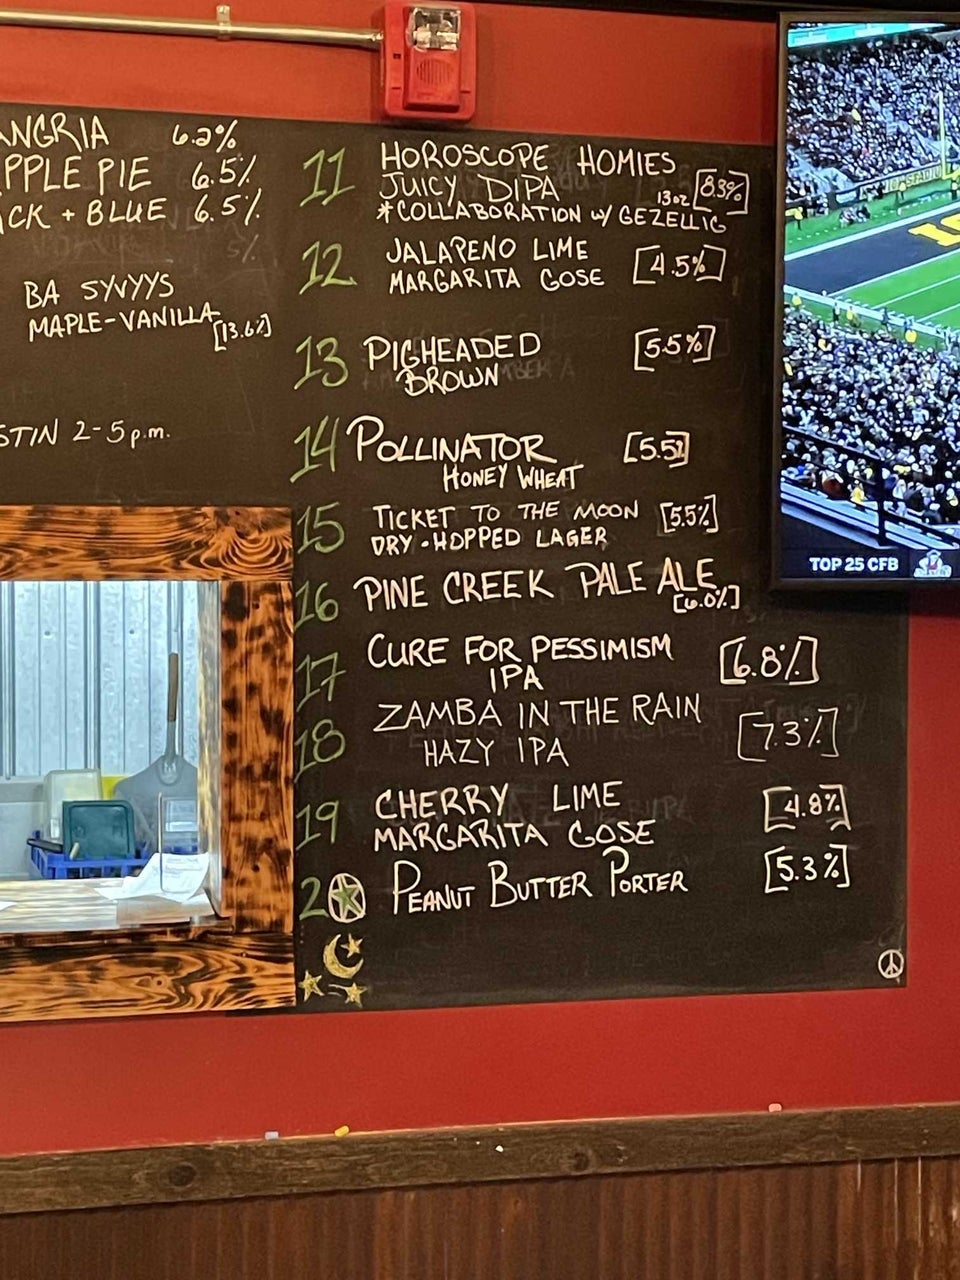 6.2%
PIE 6.5%
+ BLUE 6.5%
BA SYNYYS
MAPLE-VANILLA
[13.6%]
2-5 p.m.
11 HOROSCOPE HOMIES
JUICY DIPA 13oz [8.3%]
*COLLABORATION w/ GEZELLIG
12 JALAPENO LIME [4.5%]
MARGARITA GOSE
13 PIGHEADED [5.5%]
BROWN
14 POLLINATOR [5.5%]
HONEY WHEAT
15 TICKET TO THE MOON [5.5%]
DRY-HOPPED LAGER
16 PINE CREEK PALE ALE
[6.0%]
17 CURE FOR PESSIMISM [6.8%]
IPA
18 ZAMBA IN THE RAIN [7.3%]
HAZY IPA
19 CHERRY LIME [4.8%]
MARGARITA GOSE
20 PEANUT BUTTER PORTER [5.3%]
TOP 25 CFB